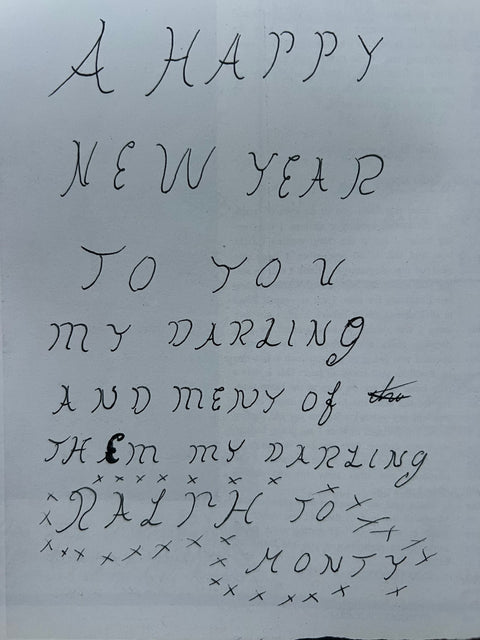 A HAPPY
NEW YEAR
TO YOU
MY DARLING
AND MENY Of
THEM MY DARLING
RALPH TO
MONTY